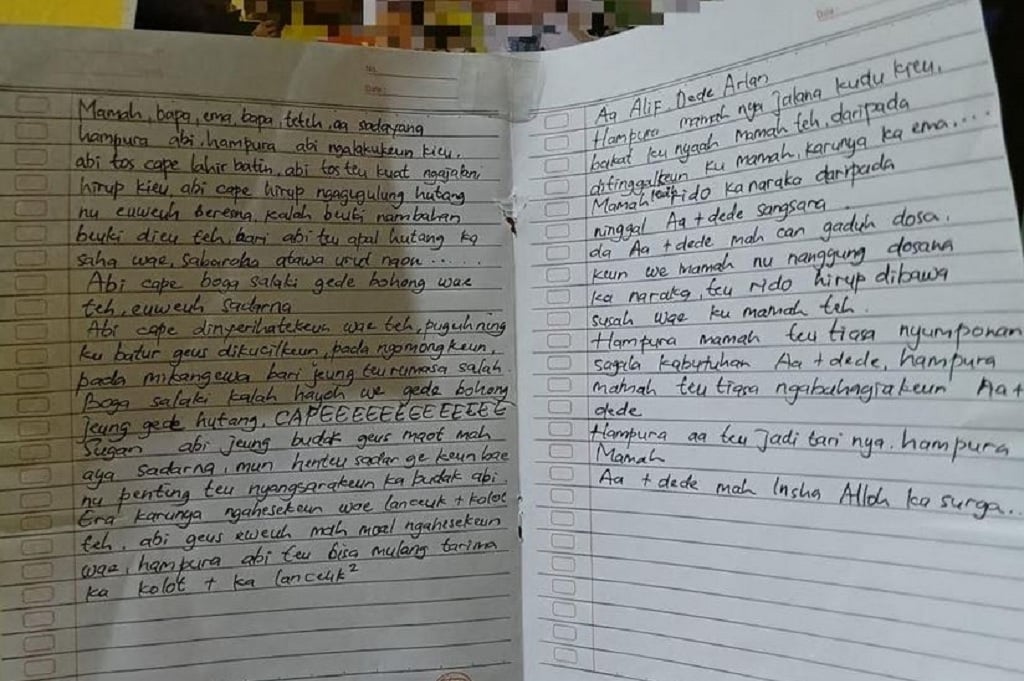 No.
Date
Mamah, bapa, ema, bapa, teteh, aa sadayana
hampura abi. hampura abi ngalakukeun kieu.
abi tos cape lahir batin, abi tos teu kuat ngajalani
hirup kieu, abi cape hirup ngagugulung hutang
nu euweuh beresna, kalah beuki nambahan
beuki dieu teh, bari abi teu apal hutang ka
saha wae, sabaraha atawa urut naon ......
Abi cape boga salaki gede bohong wae
teh, euweuh sadarna
Abi cape dinyerihatekeun wae teh, puguh ning
ku batur geus dikucilkeun, pada ngomongkeun,
pada mikangewa bari jeung teu rumasa salah.
Boga salaki kalah hayoh we gede bohong
jeung gede hutang, CAPEEEEEEEEEEEEE
Sugan abi jeung budak geus maot mah
aya sadarna, mun henteu sadar ge keun bae
nu penting teu nyangsarakeun ka budak abi.
Era karunya ngahesekeun wae lanceuk + kolot
teh, abi geus euweuh mah moal ngahesekeun
wae, hampura abi teu bisa mulang tarima
ka kolot + ka lanceuk²
Date
Aa Alif Dede Arlan
Hampura mamah nya jalana kudu kieu.
bakat ku nyaah mamah teh, daripada
ditinggalkeun ku mamah, karunya ka ema....
Mamah leuih rido ka naraka daripada
ninggal Aa + dede sangsara.
da Aa + dede mah can gaduh dosa.
keun we mamah nu nanggung dosana
ka naraka, teu rido hirup dibawa
susah wae ku mamah teh.
Hampura mamah teu tiasa nyumponan
sagala kabutuhan Aa + dede, hampura
mamah teu tiasa ngabahagiakeun Aa +
dede
Hampura aa teu jadi tari nya. hampura
Mamah
Aa + dede mah Insha Alloh ka surga...